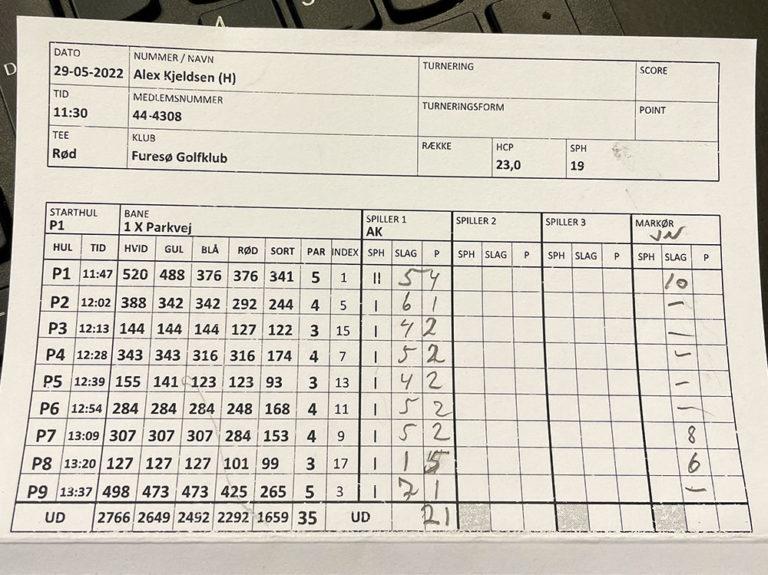 DATO NUMMER / NAVN TURNERING SCORE
29-05-2022 Alex Kjeldsen (H)
TID MEDLEMSNUMMER TURNERINGSFORM POINT
11:30 44-4308
TEE KLUB RÆKKE HCP SPH
Rød Furesø Golfklub 23,0 19
STARTHUL BANE SPILLER 1 SPILLER 2 SPILLER 3 MARKØR
P1 1 X Parkvej AK JN
HUL TID HVID GUL BLÅ RØD SORT PAR INDEX SPH SLAG P SPH SLAG P SPH SLAG P SPH SLAG P
P1 11:47 520 488 376 376 341 5 1 II 5 4 10
P2 12:02 388 342 342 292 244 4 5 I 6 1 -
P3 12:13 144 144 144 127 122 3 15 I 4 2 -
P4 12:28 343 343 316 316 174 4 7 I 5 2 -
P5 12:39 155 141 123 123 93 3 13 I 4 2 -
P6 12:54 284 284 284 248 168 4 11 I 5 2 -
P7 13:09 307 307 307 284 153 4 9 I 5 2 8
P8 13:20 127 127 127 101 99 3 17 I 1 5 6
P9 13:37 498 473 473 425 265 5 3 I 7 1 -
UD 2766 2649 2492 2292 1659 35 UD 21